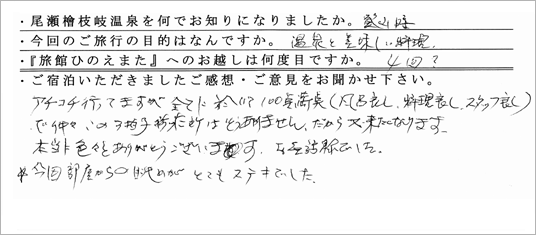 ・尾瀬檜枝岐温泉を何でお知りになりましたか。
・今回のご旅行の目的はなんですか。 温泉と美味しい料理.
・『旅館ひのえまた』へのお越しは何度目ですか。 4回?
・ご宿泊いただきましたご感想・ご意見をお聞かせ下さい。
アチコチ行ってますが全てに於いて100点満点(風呂良し、料理良し、スタッフ良し)
で仲々この様な所はそうありません、だから又来たくなります.
本当に色々とありがとうございます.
*今回部屋からの眺めがとてもステキでした.